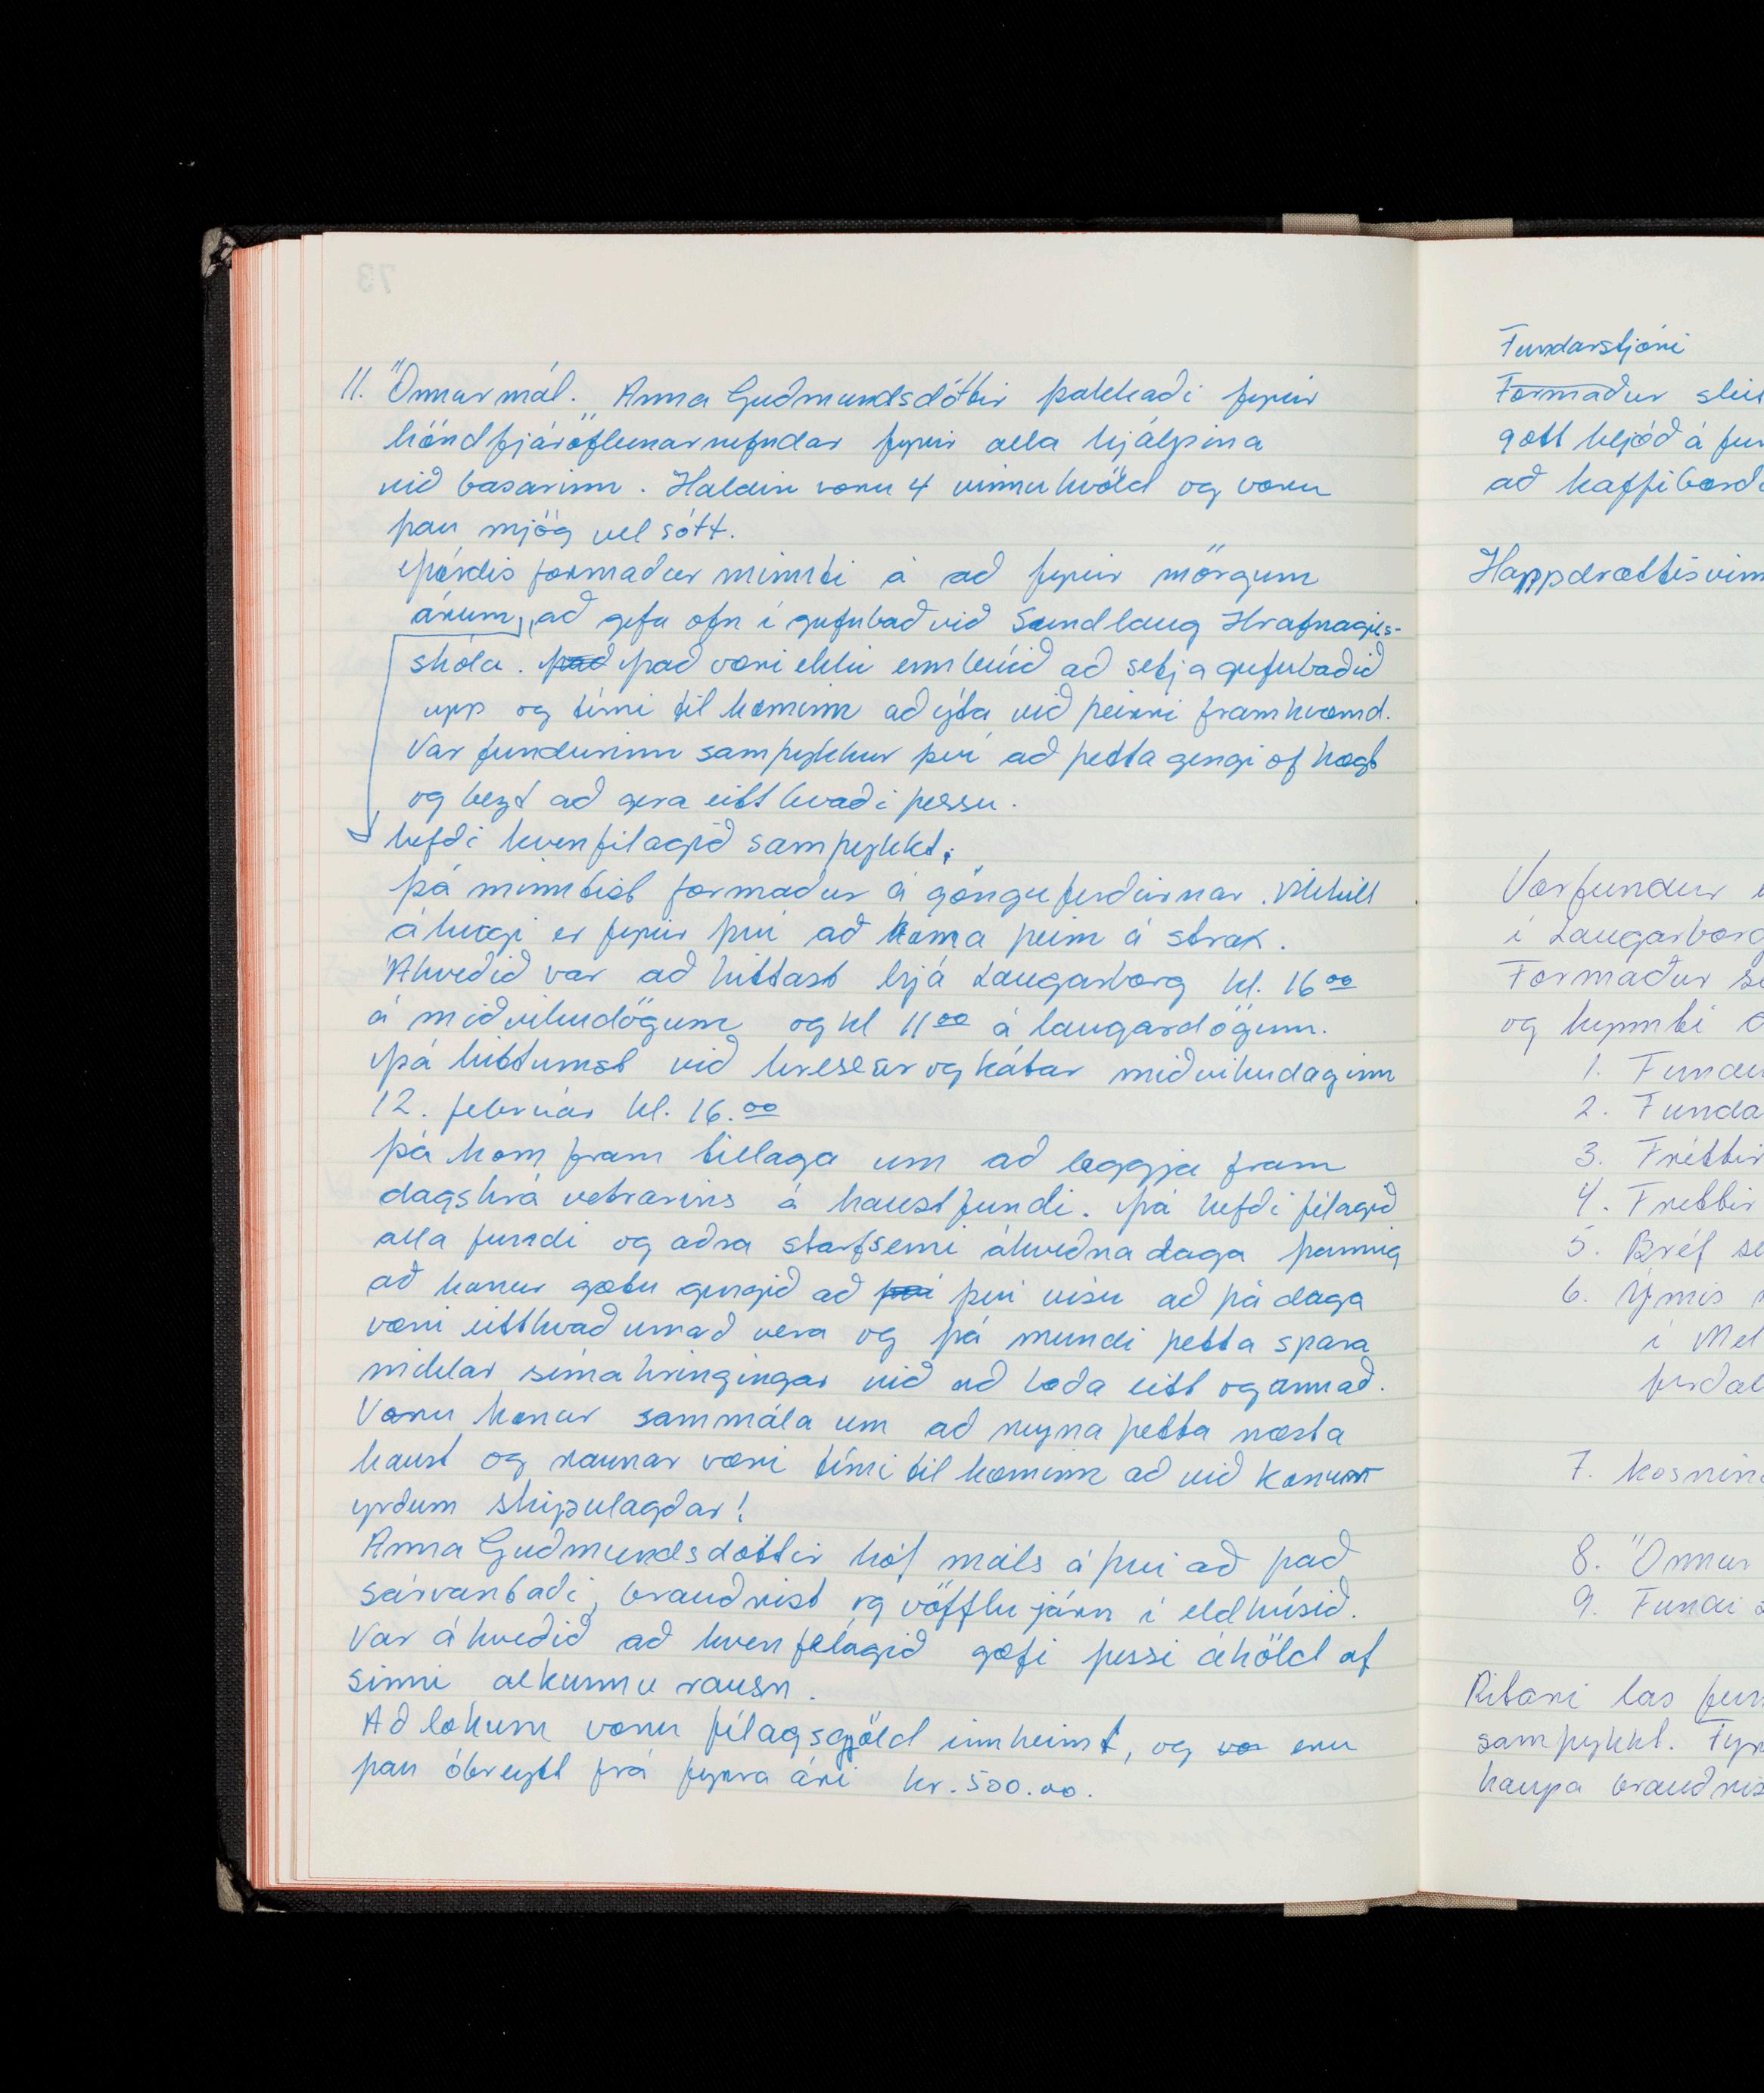 11. Önnur mál. Anna Guðmundsdóttir þakkaði fyrir
hönd fjáröflunarnefndar fyrir alla hjálpina
við basarinn. Haldin voru 4 vinnukvöld og voru
þau mjög vel sótt.
Þórdís formaður minnti á að fyrir mörgum
árum, að gefa ofn í gufubað við Sundlaug Hrafnagils-
skóla. það það væri ekki enn búið að setja gufubaðið
upp og tími til kominn að ýta við þeirri framkvæmd.
Var fundurinn samþykkur því að þetta gengi of hægt
og bezt að gera eitthvað í þessu.
hefði kvenfélagið samþykkt,
þá minntist formaður á gönguferðirnar. Mikill
áhugi er fyrir því að koma þeim á strax.
Ákveðið var að hittast hjá Laugarborg kl. 16 00
á miðvikudögum og kl 11 00 á laugardögum.
þá hittumst við hressar og kátar miðvikudaginn
12. febrúar kl. 16.00
þá kom fram tillaga um að leggja fram
dagskrá vetrarins á haustfundi. þá hefði félagið
alla fundi og aðra starfsemi ákveðna daga þannig
að konur gætu gengið að því því vísu að þá daga
væri eitthvað um að vera og þá mundi þetta spara
miklar símahringingar við að boða eitt og annað.
Voru konur sammála um að reyna þetta næsta
haust og raunar væri tími til kominn að við konur
yrðum skipulagðar!
Anna Guðmundsdóttir hóf máls á því að það
sárvantaði, brauðrist og vöfflujárn í eldhúsið.
Var ákveðið að kvenfélagið gæfi þessi áhöld af
sinni alkunnu rausn.
Að lokum voru félagsgjöld innheimt, og vor eru
þau óbreytt frá fyrra ári kr. 500.00.
Fundarstjóri
Formaður slei
gott hljóð á fun
að kaffiborð
Happdrættisvinn
Vorfundur
í Laugarborg
Formaður se
og kynnti
1. Fundu
2. Funda
3. Fréttir
4. Fréttir
5. Bréf se
6. Ýmis
í Mel
ferðal
7. Kosning
8. Önnur
9. Fundi s
Ritari las fun
samþykkt. Fyr
kaupa brauðris